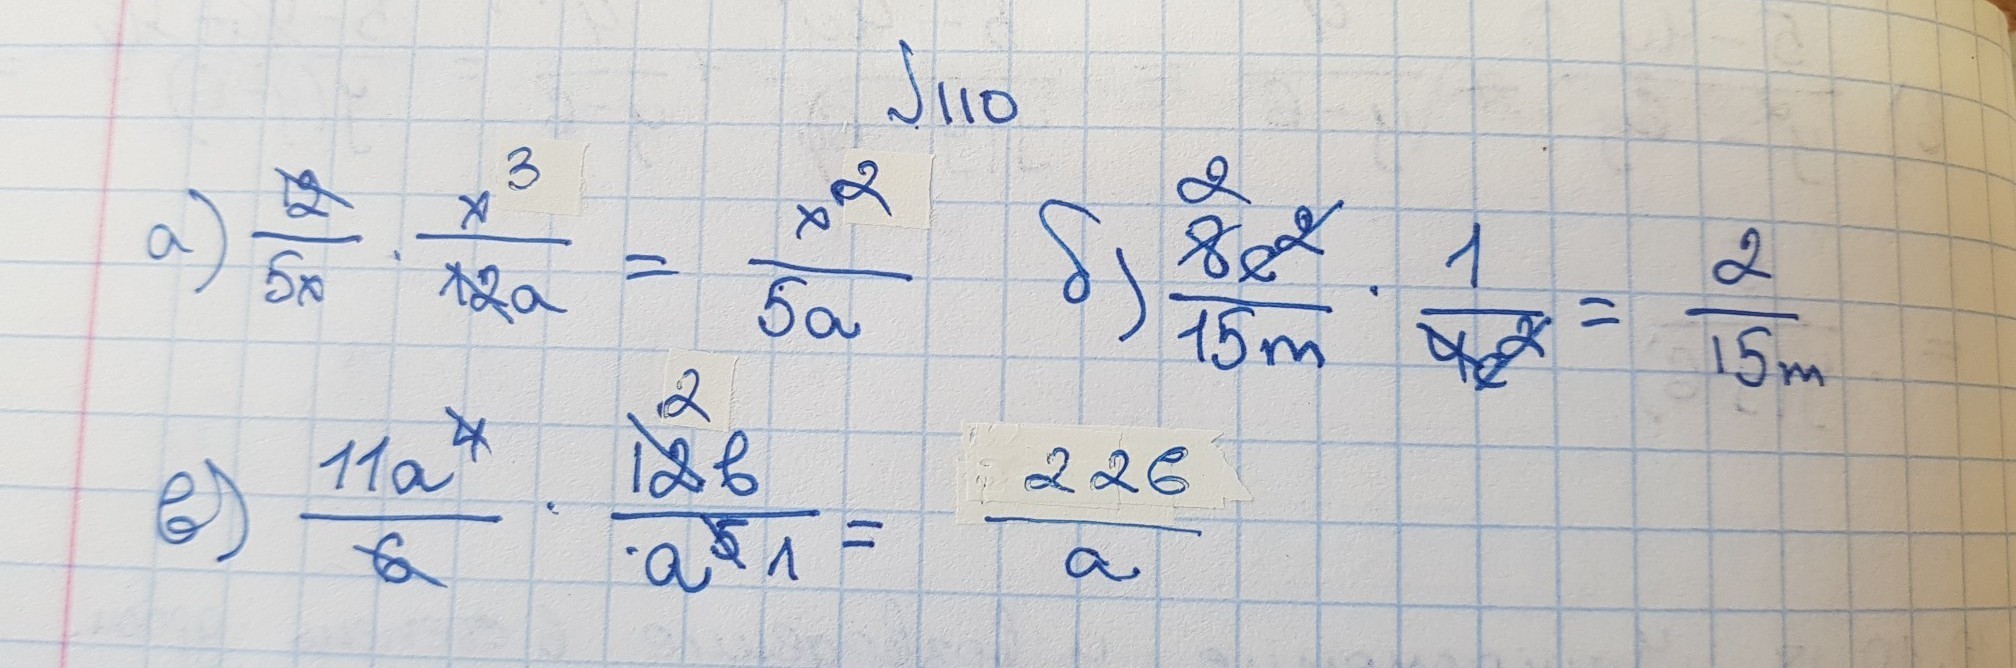 №110
а) 12/5x · x³/12a = x²/5a б) 2 8c²/15m · 1/4c² = 2/15m
в) 11a⁴/6 · 2 12b/a⁵ 1 = 22b/a